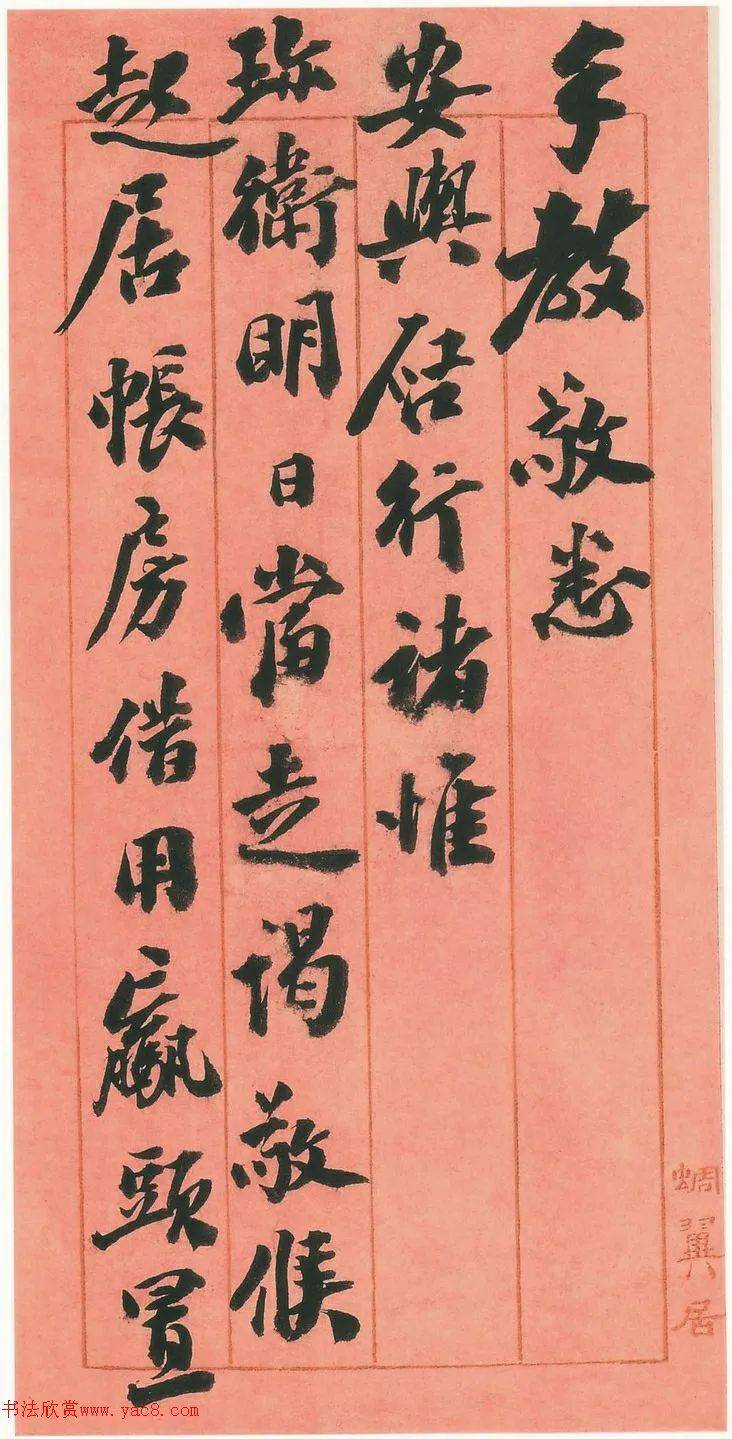 手教敬悉
安輿启行諸惟
珎衛明日當走謁敬候
起居帳房借用頭置
蜩翼居
书法欣赏www.yac8.com